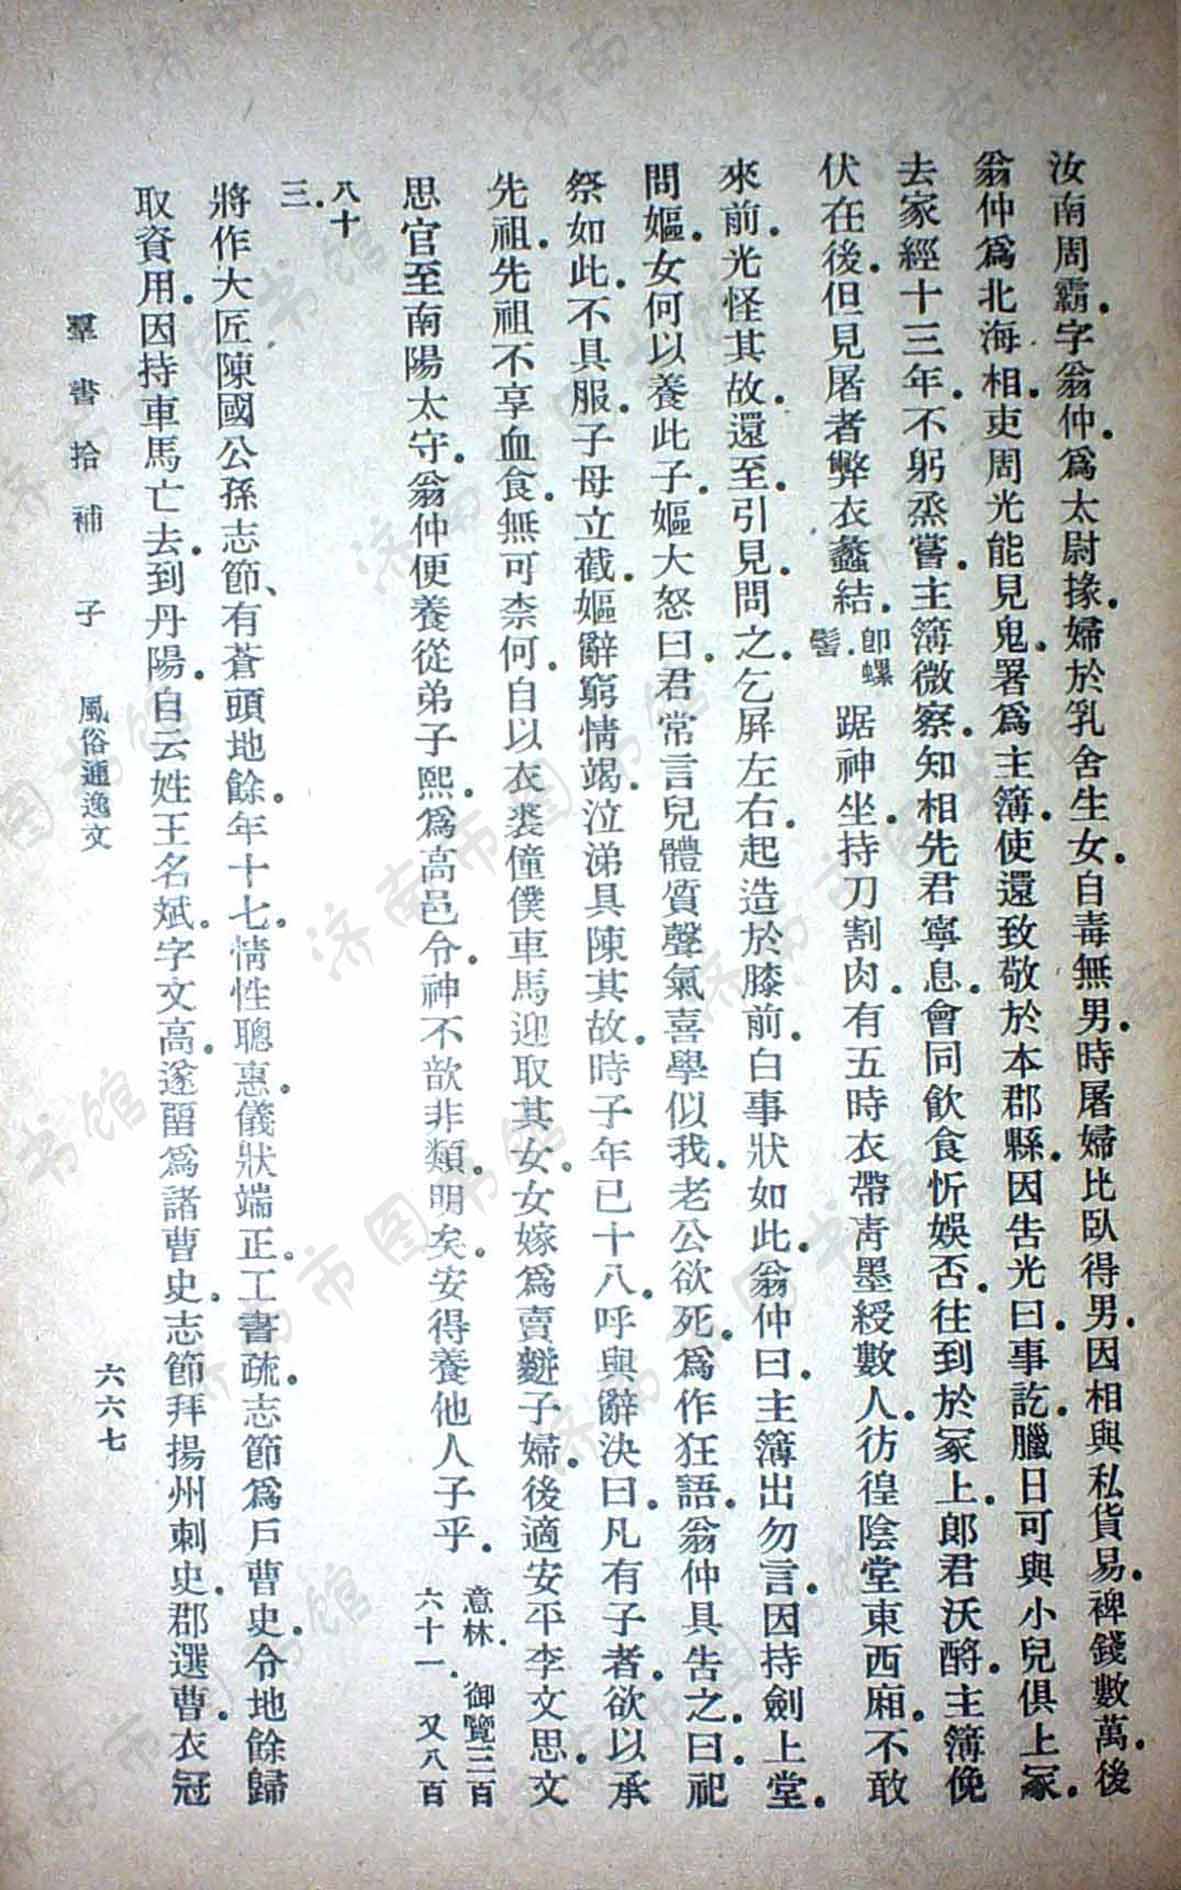 汝南周霸．字翁仲．爲太尉掾．婦於乳舍生女．自毒無男．時屠婦比臥得男．因相與私貨易．裨錢數萬．後
翁仲爲北海相．吏周光能見鬼．署爲主簿．使還致敬於本郡縣．因告光曰．事訖．臘日可與小兒俱上冢．
去家經十三年．不躬烝嘗．主簿微察．知相先君寧息．會同飲食忻娛否．往到於冢上．郎君沃酹．主簿俛
伏在後．但見屠者弊衣蠡結．卽螺髻．踞神坐．持刀割肉．有五時衣帶靑墨綬數人．彷徨陰堂東西廂．不敢
來前．光怪其故．還至引見．問之．乞屛左右．起造於膝前．白事狀如此．翁仲曰．主簿出勿言．因持劍上堂．
問嫗．女何以養此子．嫗大怒曰．君常言兒體質聲氣喜學似我．老公欲死．爲作狂語．翁仲具告之．曰．祀
祭如此．不具服．子母立截．嫗辭窮情竭．泣涕具陳其故．時子年已十八．呼與辭決曰．凡有子者．欲以承
先祖．先祖不享血食．無可柰何．自以衣裘僮僕車馬迎取其女．女嫁爲賣䴵子婦．後適安平李文思．文
思官至南陽太守．翁仲便養從弟子熙．爲高邑令．神不歆非類．明矣．安得養他人子乎．意林．御覽三百六十一．又八百
八十三．
將作大匠陳國公孫志節、有蒼頭地餘．年十七．情性聰惠．儀狀端正．工書疏．志節爲戶曹史．令地餘歸
取資用．因持車馬亡去．到丹陽．自云姓王名斌．字文高．遂畱爲諸曹史．志節拜揚州刺史．郡選曹．衣冠
羣書拾補 子 風俗通逸文
六六七
济南市图书馆